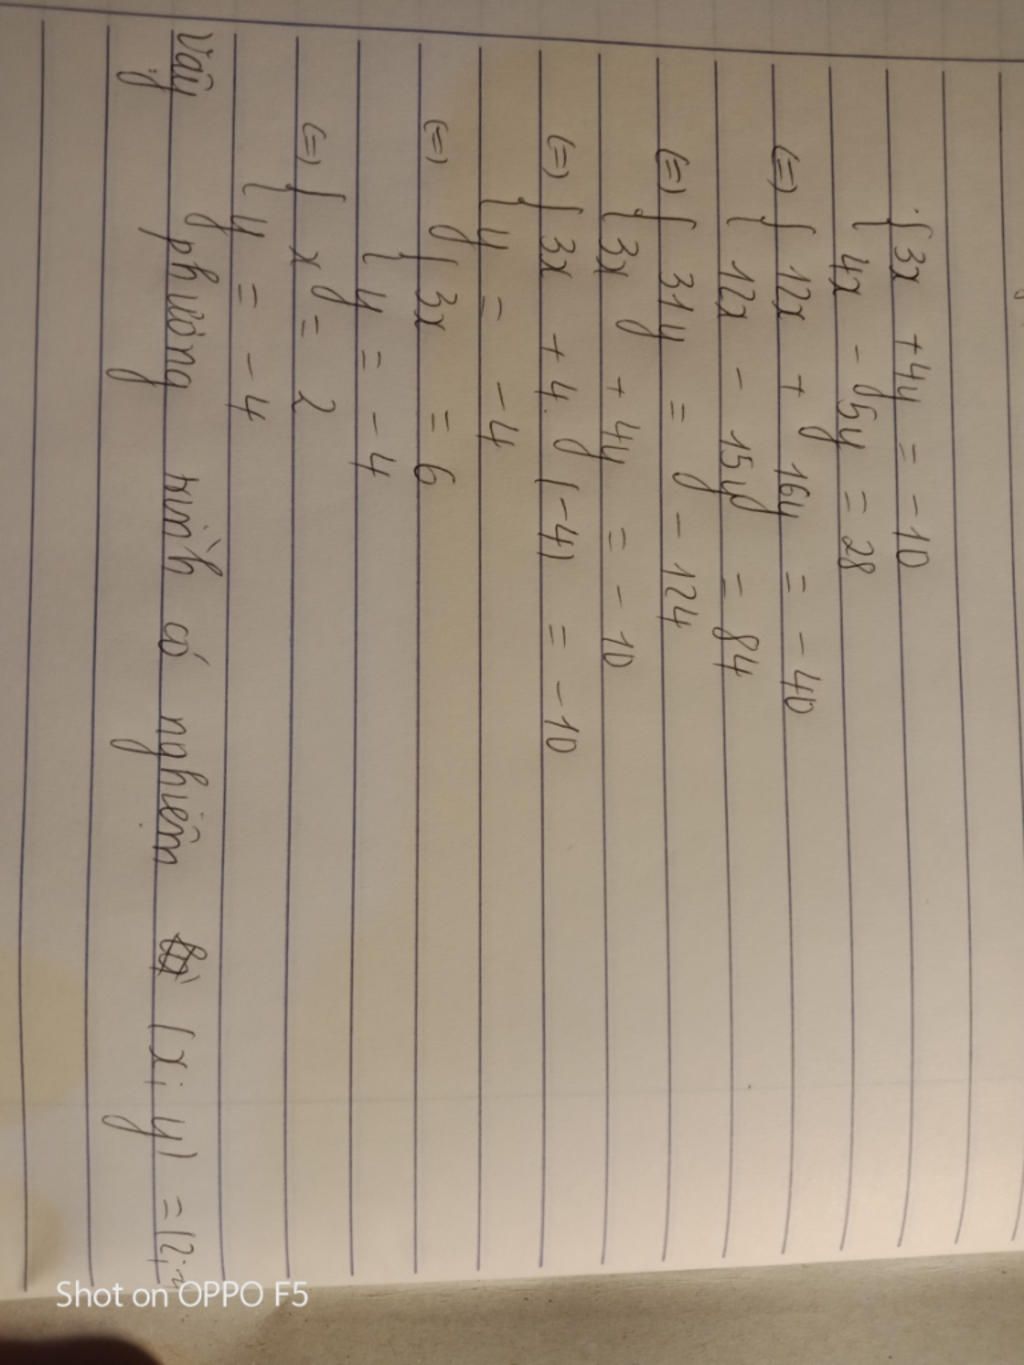 { 3x + 4y = - 10
{ 4x - 5y = 28
(=) { 12x + 16y = - 40
{ 12x - 15y = 84
(=) { 31y = - 124
{ 3x + 4y = - 10
(=) { 3x + 4. (-4) = - 10
{ y = - 4
(=) { 3x = 6
{ y = - 4
(=) { x = 2
{ y = - 4
Vậy phương trình có nghiệm (x; y) = (2;
Shot on OPPO F5